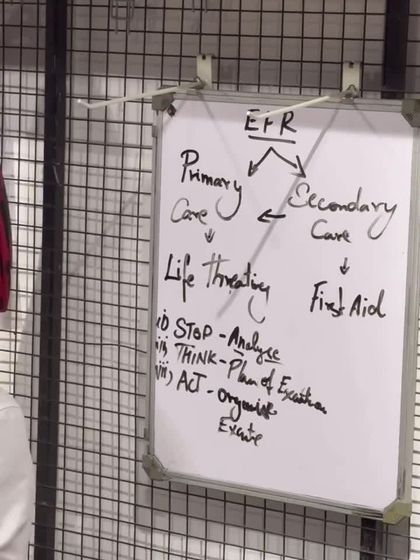 EFR
Primary
Care
Secondary
Care
Life Threating
First Aid
i) STOP - Analyse
ii) THINK - Plan of Execution
iii) ACT - Organise
Excute